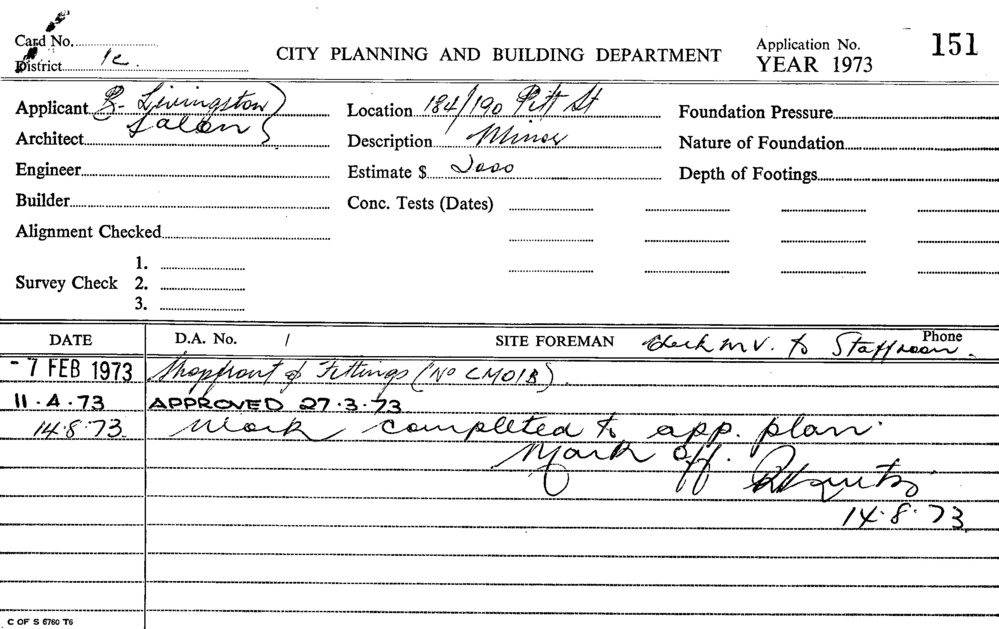 Card No.
CITY PLANNING AND BUILDING DEPARTMENT
Application No. 151
District 1c
YEAR 1973
Applicant R- Livingston
Location 184/190 Pitt St
Foundation Pressure
Salon
Architect
Description Minor
Nature of Foundation
Engineer
Estimate $ 2000
Depth of Footings
Builder
Conc. Tests (Dates)
Alignment Checked
1.
Survey Check 2.
3.
DATE D.A. No. / SITE FOREMAN Check M.V. to Staffroom. Phone
- 7 FEB 1973 Shopfront & Fittings (No CM01B).
11.4.73 APPROVED 27.3.73
14.8.73. Work completed to app. plan.
Mark off.
14.8.73
C OF S 6760 T6